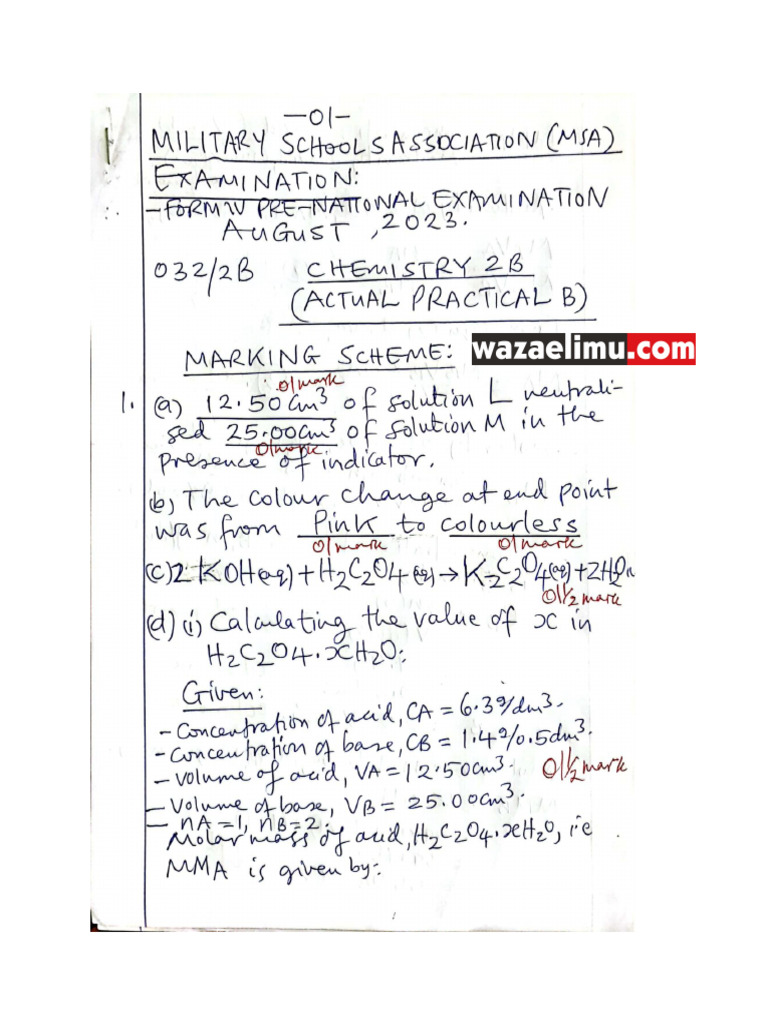 -01-
MILITARY SCHOOLS ASSOCIATION (MSA)
EXAMINATION:
-FORM IV PRE-NATIONAL EXAMINATION
AUGUST, 2023.
032/2B CHEMISTRY 2B
(ACTUAL PRACTICAL B)
MARKING SCHEME:
wazaelimu.com
01 mark
1. (a) 12.50cm³ of solution L neutrali-
sed 25.00cm³ of solution M in the
01 mark
presence of indicator.
(b) The colour change at end point
was from Pink to colourless
01 mark 01 mark
(c) 2KOH(aq) + H2C2O4(aq) → K2C2O4(aq) + 2H2O
01½ mark
(d) (i) Calculating the value of x in
H2C2O4.xH2O:
Given:
- Concentration of acid, CA = 6.3g/dm³.
- Concentration of base, CB = 1.4g/0.5dm³.
- Volume of acid, VA = 12.50cm³. 01½ mark
- Volume of base, VB = 25.00cm³.
- nA = 1, nB = 2.
Molar mass of acid, H2C2O4.xH2O, i.e
MMA is given by: